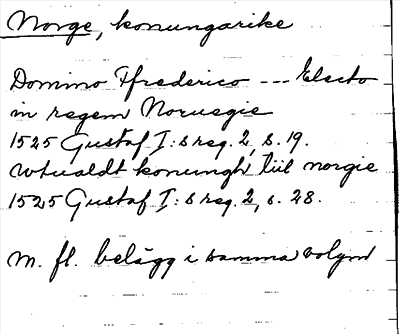 Norge, konungarike
Domino Ffrederico --- Electo
in regem Noruegie
1525 Gustaf I:s reg. 2, s. 19.
wtualdt konungh till norgie
1525 Gustaf I:s reg. 2, s. 28.
M. fl. belägg i samma volym